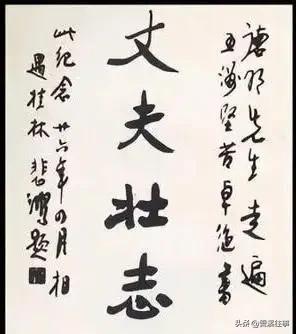 德明先生走遍
五洲坚苦卓绝书
丈夫壮志
此纪念 廿六年四月相
遇桂林 悲鸿题
头条 @云溪往事